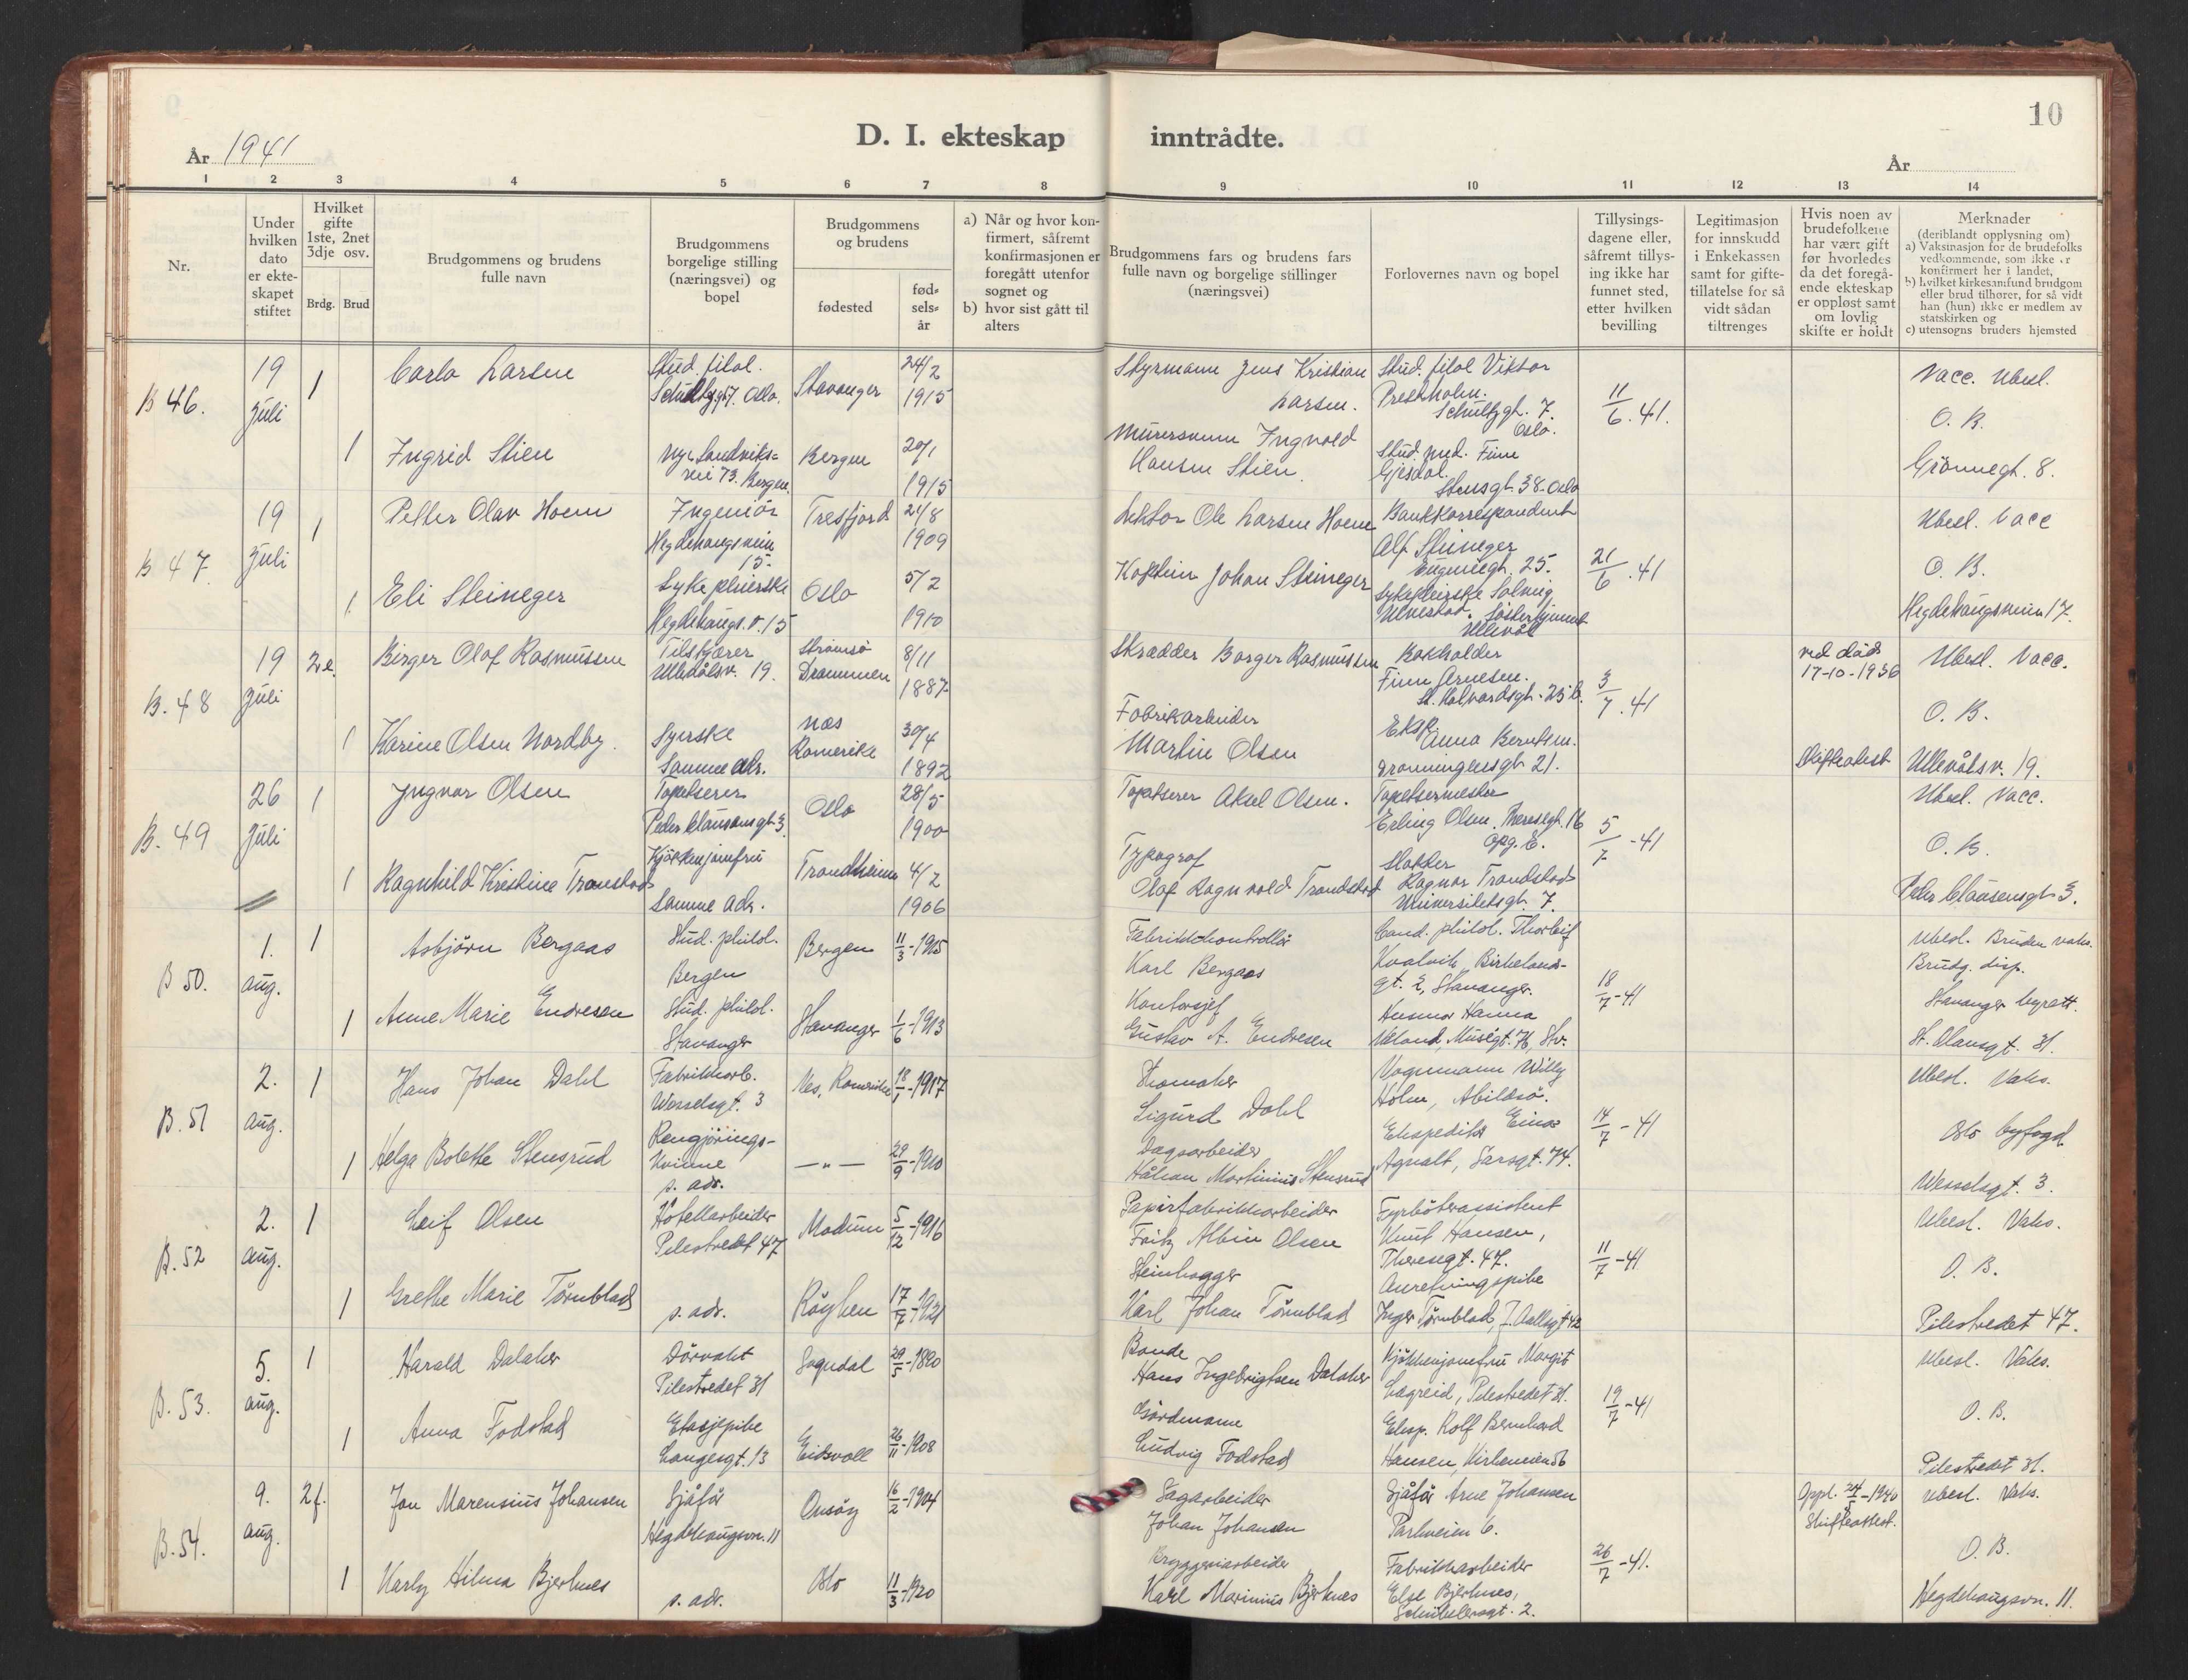 10
D. I. ekteskap inntrådte.
År 1941
År
1 2 3 4 5 6 7 8 9 10 11 12 13 14
Nr.
Under hvilken dato er ekteskapet stiftet
Hvilket gifte 1ste, 2net 3dje osv.
Brdg. Brud
Brudgommens og brudens fulle navn
Brudgommens borgelige stilling (næringsvei) og bopel
Brudgommens og brudens
fødested
fødselsår
a) Når og hvor konfirmert, såfremt konfirmasjonen er foregått utenfor sognet og
b) hvor sist gått til alters
Brudgommens fars og brudens fars fulle navn og borgelige stillinger (næringsvei)
Forlovernes navn og bopel
Tillysingsdagene eller, såfremt tillysing ikke har funnet sted, etter hvilken bevilling
Legitimasjon for innskudd i Enkekassen samt for giftetillatelse for så vidt sådan tiltrenges
Hvis noen av brudefolkene har vært gift før hvorledes da det foregående ekteskap er oppløst samt om lovlig skifte er holdt
Merknader
(deriblandt opplysning om)
a) Vaksinasjon for de brudefolks vedkommende, som ikke er konfirmert her i landet,
b) hvilket kirkesamfund brudgom eller brud tilhører, for så vidt han (hun) ikke er medlem av statskirken og
c) utensogns bruders hjemsted
B 46.
19 juli
1
Carlo Larsen
Stud. filol.
Schultzgt 7. Oslo.
Stavanger
24/2 1915
Styrmann Jens Kristian Larsen.
Stud. filol Viktor Prestholm.
Schultzgt. 7. Oslo.
11/6.41.
Vacc. Ubesl.
O. B.
1
Ingrid Stien
Nye Sandviksvei 73. Bergen.
Bergen
20/1 1915
Murersvenn Ingvald Hansen Stien.
Stud. med. Finn Gjesdal.
Stensgt. 38 - Oslo
Grönnegt. 8.
B 47.
19 juli
1
Petter Olav Hoem
Ingeniör
Hegdehaugsveien 15.
Tresfjord
21/8 1909
Lektor Ole Larsen Hoem
Bankkorrespondent
Alf Steineger
Eugeniegt. 25.
21/6.41
Ubesl. Vacc
O. B.
1
Eli Steineger
Sykepleierske
Hegdehaugs.v. 15
Oslo
5/2 1910
Kaptein Johan Steineger
Sykepleierske Solveig
Søsterhjemmet Ullevål
Hegdehaugsveien 17.
B. 48
19 juli
2e
Birger Olaf Rasmussen
Tilskjærer
Ullevålsv. 19.
Strömsö Drammen
8/11 1887
Skrædder Borger Rasmussen
Bokholder
Finn Arnesen.
St. Halvardsgt. 25 b.
3/7.41
ved död 17-10-1936
Ubesl. Vacc.
O. B.
1
Karine Olsen Nordby.
Syerske
Samme adr.
Næs Romerike
30/4 1892
Fabrikarbeider
Martin Olsen
Eksp.
Anna Berntsen.
Dronningensgt 21.
Skifteattest
Ullevålsv. 19.
B. 49
26 juli
1
Ingvar Olsen
Tapetserer
Peder Clausensgt 3.
Oslo
28/5 1900
Tapetserer Aksel Olsen.
Tapetsermester
Erling Olsen. Theresegt. 16 opg. E.
5/7-41
Ubesl. Vacc.
O. B.
1
Ragnhild Kristine Transtad
Kjøkkenjomfru
Samme adr.
Trondheim
4/2 1906
Typograf
Olaf Ragnvald Trandstad
Slakter
Ragnar Trandstad
Universitetsgt. 7.
Peder Clausensgt 3.
B 50.
1. aug.
1
Asbjörn Bergaas
Stud. philol.
Bergen
Bergen
11/3-1915
Fabrikkontrollör
Karl Bergaas
Cand. philol. Thorleif
Kvalvik, Birkelandsgt. 2, Stavanger.
18/7-41
Ubesl. Bruden vaks.
Brudg. disp.
Stavanger byrett.
1
Anne Marie Endresen
Stud. philol.
Stavanger
Stavanger
1/6-1913
Kontorsjef
Gustav A. Endresen
Husmor Hanna
Ueland, Muségt. 76 Stv.
St. Olavsgt. 31.
B. 51
2. aug.
1
Hans Johan Dahl
Fabrikkarb.
Wesselsgt. 3
Nes, Romerike
18/1-1917
Skomaker
Sigurd Dahl
Vognmann Willy
Holm, Abildsö.
14/7-41
Ubesl. Vaks.
Oslo byfogd
1
Helga Bolette Stensrud
Rengjöringskvinne
s. adr.
— " —
29/9-1910
Dagarbeider
Håkon Martinius Stensrud
Ekspeditör Einar
Agnalt, Sarsgt. 74.
Wesselsgt. 3.
B. 52
2. aug.
1
Leif Olsen
Hotellarbeider
Pilestredet 47
Modum
5/12-1916
Papirfabrikkarbeider
Fritz Albin Olsen
Fyrböterassistent
Knut Hansen,
Theresegt. 47.
11/7-41
Ubesl. Vaks.
O. B.
1
Grethe Marie Törnblad
s. adr.
Röyken
17/7-1921
Steinhogger
Karl Johan Törnblad
Anretningspike
Inger Törnblad, J. Aallsgt 42
Pilestredet 47.
B. 53.
5. aug.
1
Harald Dalaker
Dörvakt
Pilestredet 31
Sogndal
29/5-1890
Bonde
Hans Ingebrigtsen Dalaker
Kjökkenjomfru Margit
Lagreid, Pilestredet 31.
19/7-41
Ubesl. Vaks.
O. B.
1
Anna Fodstad
Etasjepike
Langesgt. 13
Eidsvoll
26/11-1908
Gårdmann
Ludvig Fodstad
Eksp. Rolf Bernhard
Hansen, Kirkeveien 56
Pilestredet 31.
B. 54.
9. aug.
2f.
Jon Marensius Johansen
Sjåför
Hegdehaugsvn. 11
Onsöy
16/2-1904
Sagarbeider
Johan Johansen
Sjåför Arne Johansen
Parkveien 6.
26/7-41.
Oppl. 24/5-1940
Skifteattest.
Ubesl. Vaks.
O. B.
1
Karly Hilma Bjerknes
s. adr.
Oslo
11/3-1920
Bryggeriarbeider
Karl Marinius Bjerknes
Fabrikkarbeider
Else Bjerknes,
Schübelersgt. 2.
Hegdehaugsvn. 11.